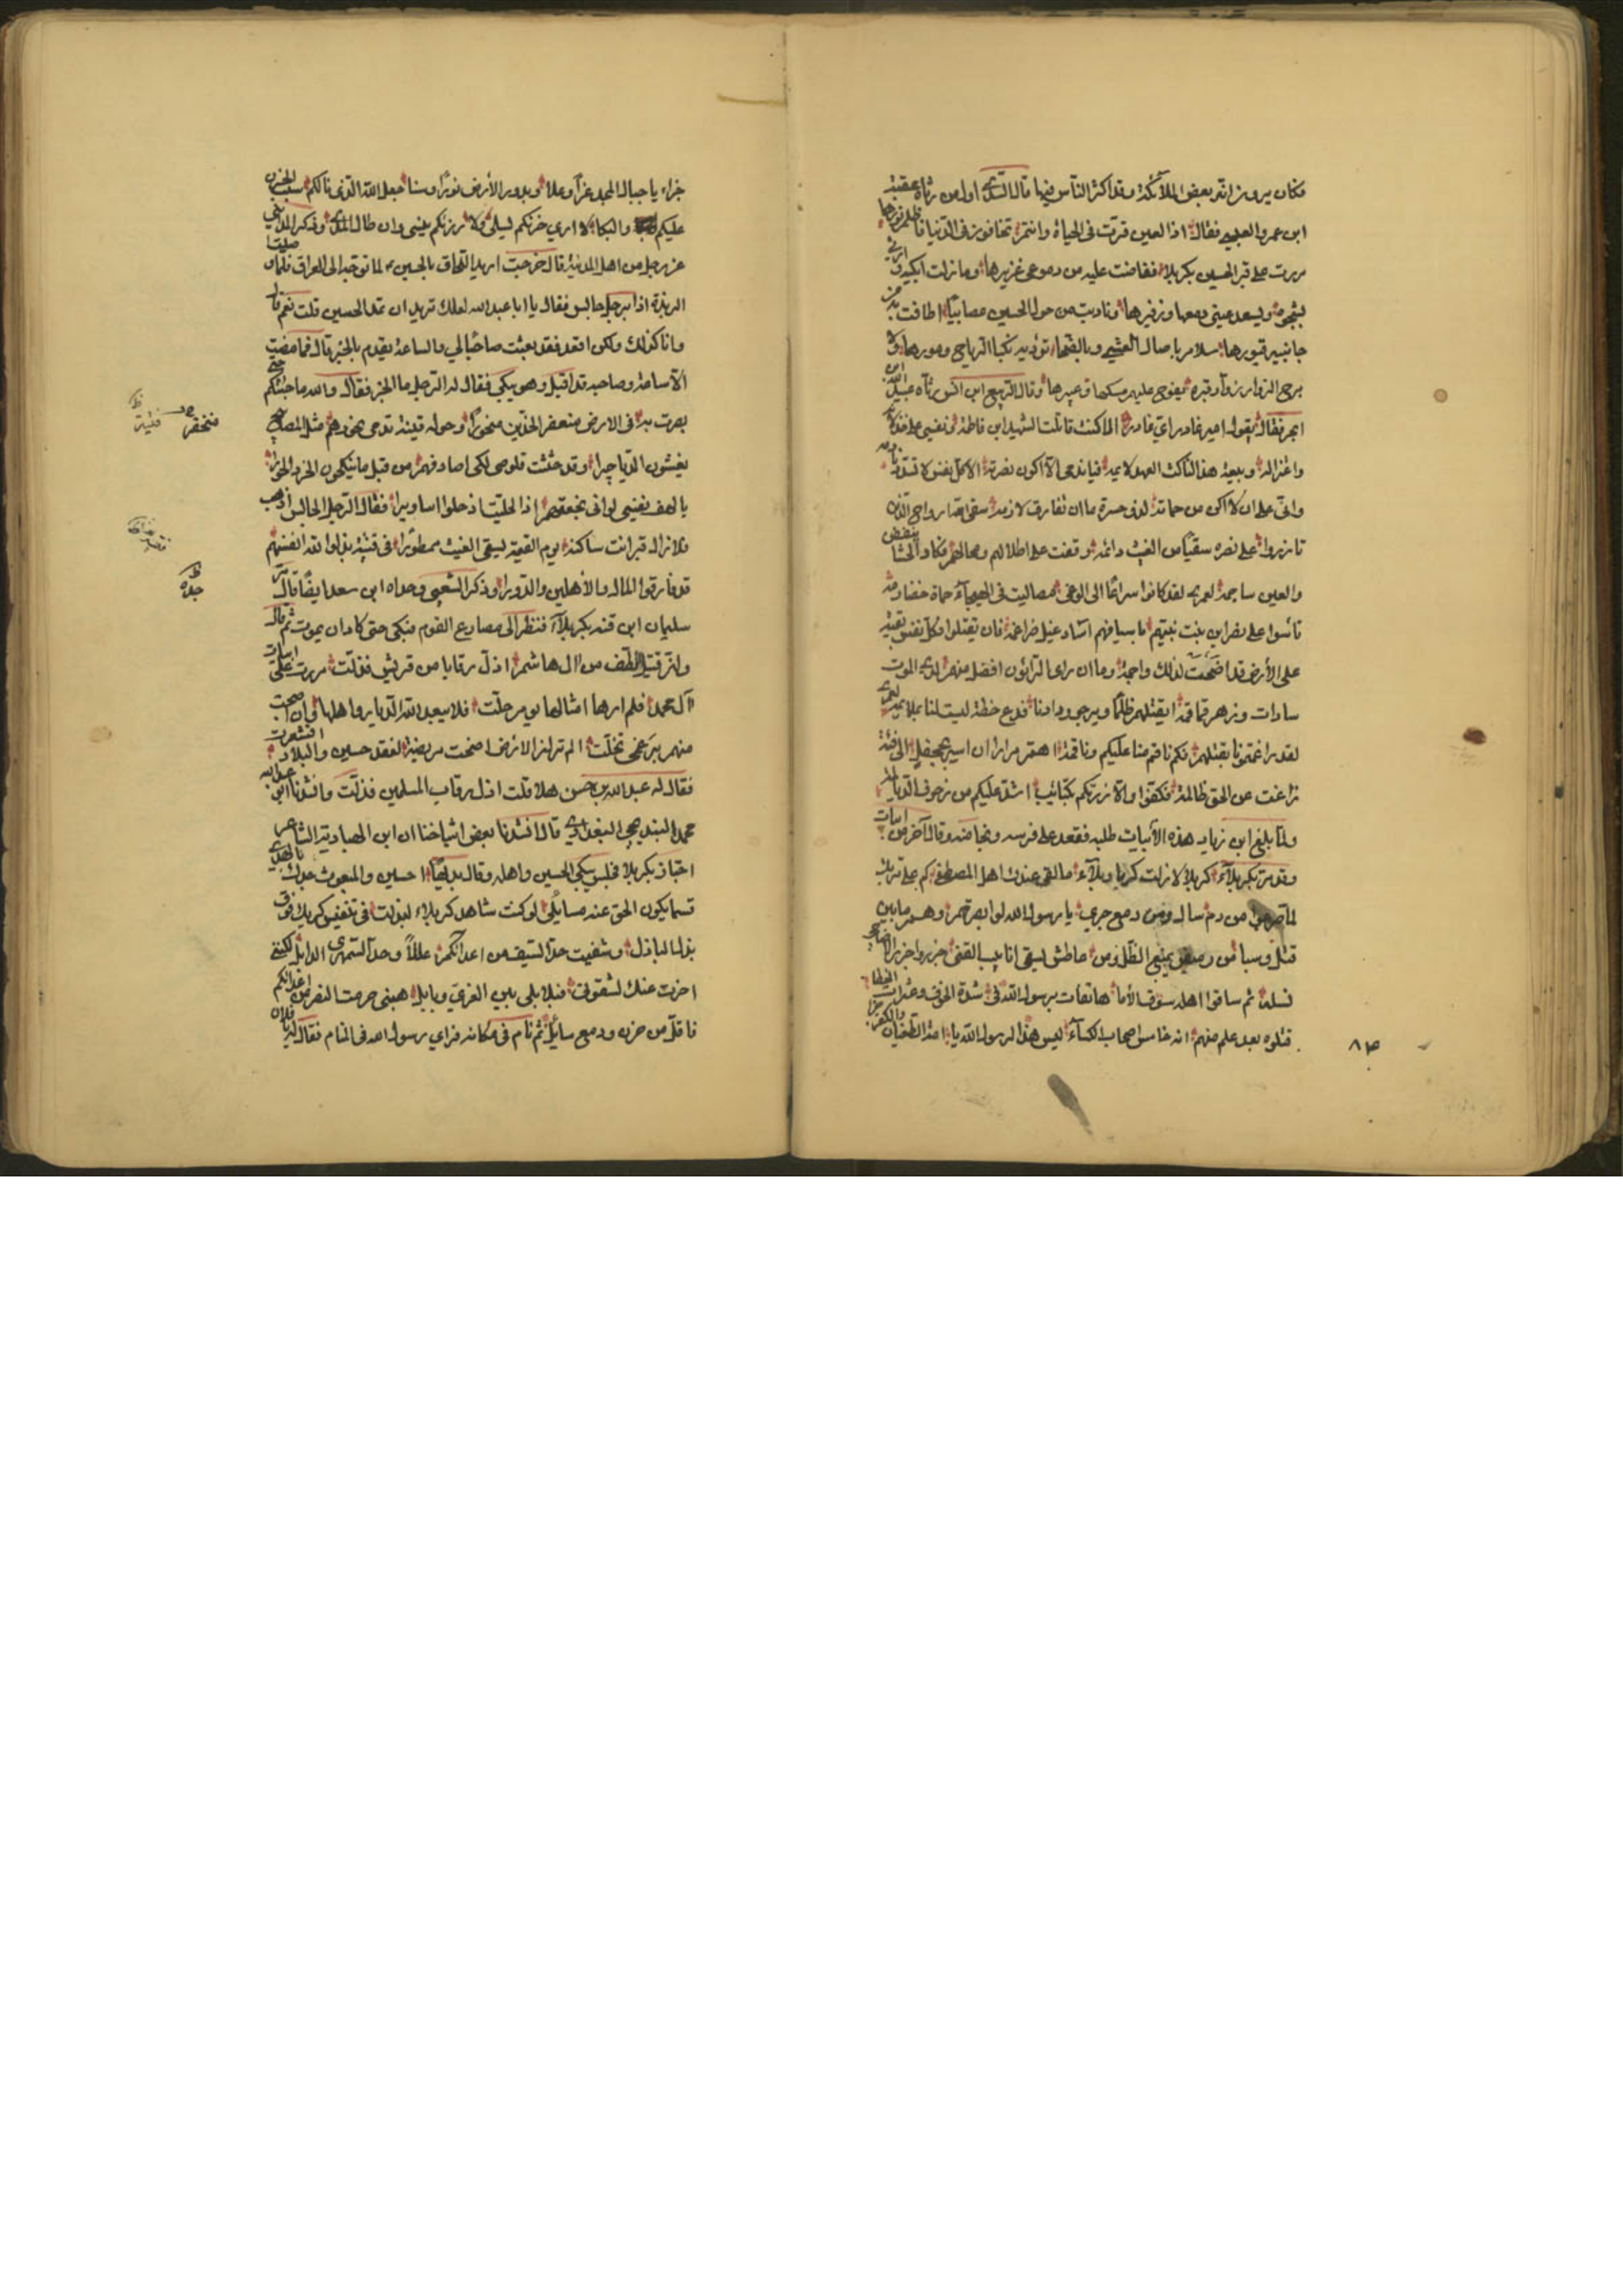 فكان يرون انه بعض الملائكة وقد اكثر الناس فيها قال السدى اول من رثاه عقبة
ابن عمرو العبسى فقال اذا العين قرت فى الحياة وانتم تخافون فى الدنيا فاظلم نورها
مررت على قبر الحسين بكربلا ففاضت عليه من دموعى غزيرها وما زلت ابكيه وارثى
لشجوه ويسعد عينى دمعها وزفيرها وناديت من حول الحسين عصايبا اطافت به من
جانبيه قبورها سلام باصال العشى وبالضحا تؤديه نكبا الرياح ومورها ولا
برح الزوار زوار قبره يفوح عليهم مسكها وعبيرها وقال الربيع ابن انس رثاه عبيد الله ابن
الحر فقال يقول امير غادر اى غادر الا كنت قاتلت الشهيد ابن فاطمة ونفسى على خذلانه
واعتزاله وبيعة هذا الناكث العهد لايمه فيا ندمى الا اكون نصرته الا كل نفس لا تسدد نادمه
وانى على ان لا اكن من حماته لذو حسرة ما ان تفارق لازمه سقى الله ارواح الذين
تازروا على نصره سقيا من الغيث دائمه وقفت على اطلالهم ومحالهم فكاد الحشا ينفض
والعين ساجمه لعمرى لقد كانوا سراعا الى الوغى مصاليت فى الهيجاء حماة خضارمه
تاسوا على نصر ابن بنت نبيهم باسيافهم اساد غيل ضراغمه فان يقتلوا فكل نفس بقية
على الأرض قد اضحت لذلك واجمه وما ان راى الراؤن افضل منهم لدى الموت
سادات وزهر قماقمه ايقتلهم ظلما ويرجو ودادنا فدع خطة ليست لنا بملايمه لعمرى
لقد راغمتمونا بقتلهم فكم ناقم منا عليكم وناقمه اهم مرارا ان اسير بجحفل الى فئة
زاغت عن الحق ظالمه فكفوا والا زرتكم بكتائب اشد عليكم من زحوف الديالمه
ولما بلغ ابن زياد هذه الأبيات طلبه فقعد على فرسه ونجا منه وقال آخر من ابيات
وقد مر بكربلاء كربلا لا زلت كربا وبلاء ما لقى عندك اهل المصطفى كم على تربك
لما صرعوا من دم سال ومن دمع جرى يا رسول الله لو ابصرتهم وهم ما بين
قتل وسبا من رميض يمنع الظل ومن عاطش يسقى انابيب القنى جزروا جزر الاضاحى
نسله ثم ساقوا اهله سوق الأما هاتفات برسول الله فى شدة الخوف وعثرات الخطا
قتلوه بعد علم منهم انه خامس اصحاب الكساء ليس هذا لرسول الله يا امة الطغيان والكفر جزا
٨٣
جزاء يا جبال المجد عزا وعلا وبدور الأرض نورا وسنا جعل الله الذى نالكم سبب الحزن
عليكم والبكا لا ارى حزنكم يسلى ولا رزئكم ينسى وان طال المدى وذكر المداينى
عن رجل من اهل المدينة قال خرجت اريد اللحاق بالحسين لما توجه الى العراق فلما صليت
الربذة اذا برجل جالس فقال يا ابا عبد الله لعلك تريد ان تمد الحسين قلت نعم قال
وانا كذلك ولكن اقعد فقد بعثت صاحبا لى والساعة يقدم بالخبر قال فما مضت
الا ساعة وصاحبه قد اقبل وهو يبكى فقال له الرجل ما الخبر فقال والله ما جئتكم حتى
بصرت به فى الارض منعفر الخدين منحورا وحوله فتية تدمى نحورهم مثل المصابيح
يغشون الدياجيرا وقد حثثت قلوصى لكى اصادفهم من قبل ما ينكحون الخرد الحورا
يا لهف نفسى لو انى بجمعهم اذا لحليت اذ حلوا اساويرا فقال الرجل الجالس اذهب
فلا زال قبر انت ساكنه يوم القيمة يسقى الغيث ممطورا فى فتية بذلوا لله انفسهم
قد فارقوا المال والأهلين والدورا وذكر الشعبى وحداه ابن سعد ايضا قال مر
سليمان ابن قته بكربلاء فنظر الى مصارع القوم فبكى حتى كاد ان يموت ثم قال
وان قتيل الطف من ال هاشم اذل رقابا من قريش فذلت مررت على ابيات
آل محمد فلم ارها امثالها يوم حلت فلا يبعد الله الديار واهلها وان اصبحت
منهم برغمى تخلت الم تر ان الارض اضحت مريضة لفقد حسين والبلاد اقشعرت
فقال له عبد الله بن حسن هلا قلت اذل رقاب المسلمين فذلت وانشدنا ابو عبد الله
محمد البنديجى البغدادى قال انشدنا بعض اشياخنا ان ابن الهبارية الشاعر
اجتاز بكربلا فجلس يبكى الحسين واهله وقال بديها احسين والمبعوث جدك بالهدى
قسما يكون الحق عنه مسايلى لو كنت شاهد كربلاء لبذلت فى تنفيس كربك فوق
بذل الباذل وسقيت حد السيف من اعدائكم عللا وحد السمهرى الذابل لكننى
اخرت عنك لشقوتى فبلابلى بين الغرى وبابل هبنى حرمت النصر من اعدائكم
فاقل من حزن ودمع سائل ثم نام فى مكانه فراى رسول الله فى المنام فقال له يا فلان
منخفر
ظ
فتية
ظ
جده